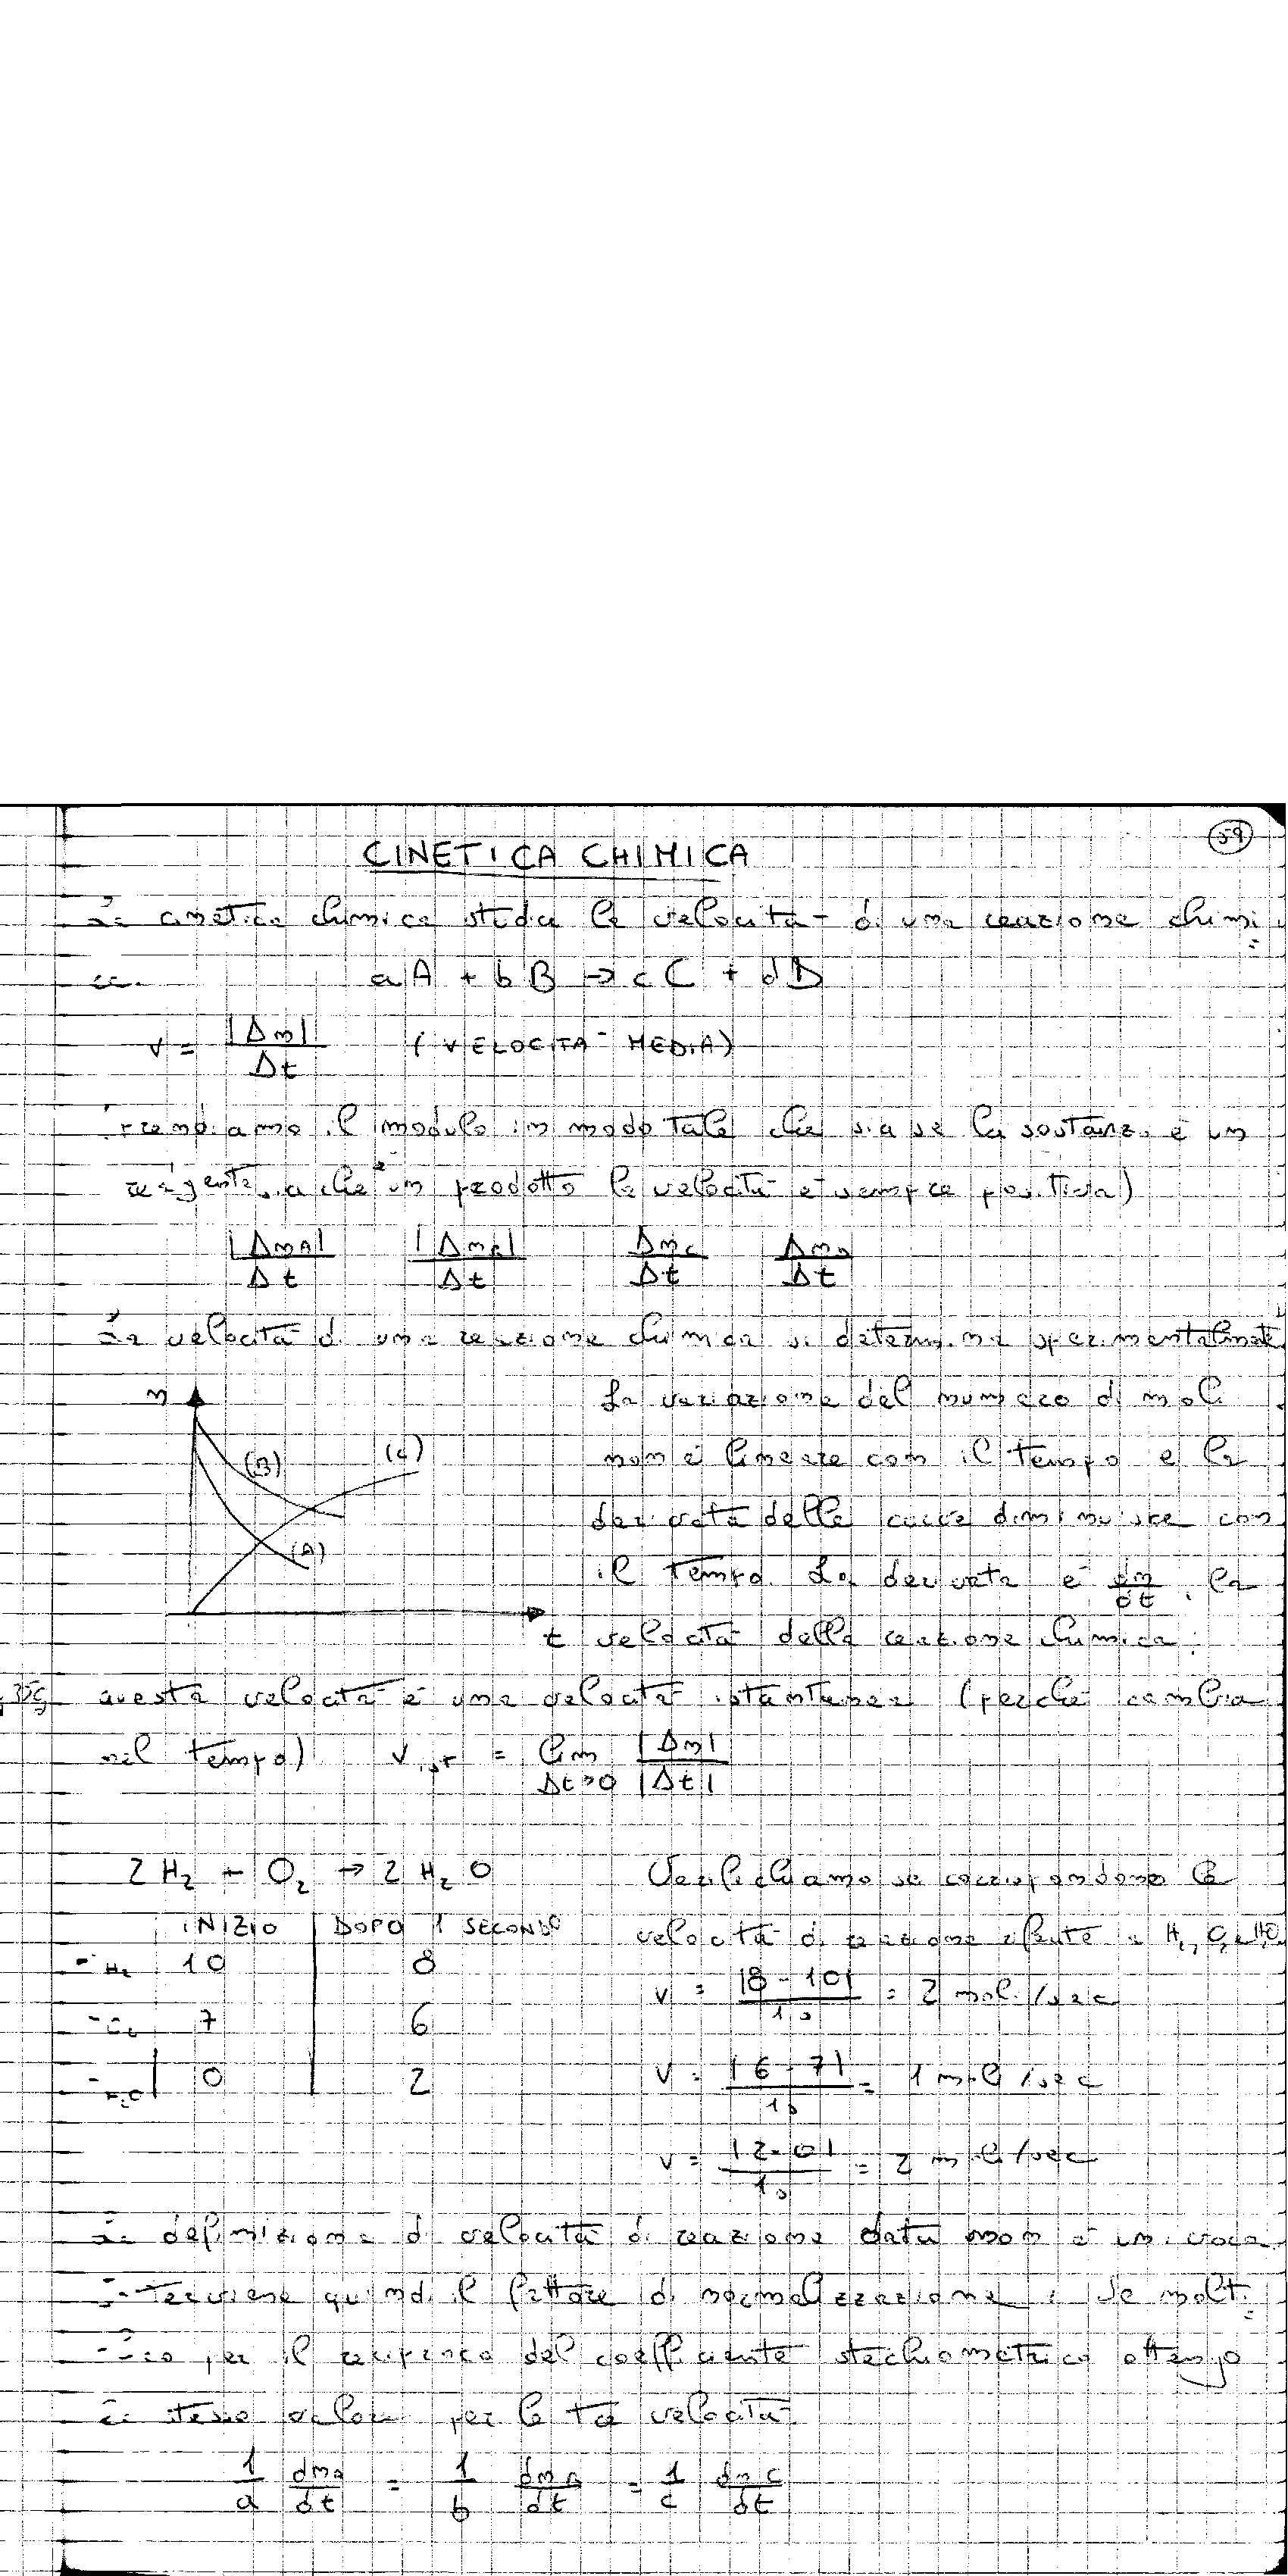 59
CINETICA CHIMICA
La cinetica chimica studia la velocità di una reazione chimi
ca. aA + bB → cC + dD
v = |Δn| / Δt (VELOCITÀ MEDIA)
Prendiamo il modulo in modo tale che sia se la sostanza è un
reagente sia che è un prodotto la velocità è sempre positiva)
|ΔnA| / Δt |ΔnB| / Δt ΔnC / Δt ΔnD / Δt
La velocità di una reazione chimica si determina sperimentalmente
n (B) (C) (A) t
La variazione del numero di moli
non è lineare con il tempo e la
derivata delle curve diminuisce con
il tempo. La derivata è dn/dt, la
velocità della reazione chimica.
Questa velocità è una velocità istantanea (perché cambia
nel tempo) v ist = lim Δt→0 |Δn| / |Δt|
2H₂ + O₂ → 2H₂O Verifichiamo se corrispondono le
INIZIO DOPO 1 SECONDO velocità di reazione riferite a H₂, O₂ e H₂O
n H₂ 10 8 v = |8-10| / 1s = 2 moli/sec
n O₂ 7 6 v = |6-7| / 1s = 1 moli/sec
n H₂O 0 2
v = |2-0| / 1s = 2 moli/sec
La definizione di velocità di reazione data non è univoca.
Interviene quindi il fattore di normalizzazione: Se molti
plico per il reciproco del coefficiente stechiometrico ottengo
lo stesso valore per le tre velocità
1/a dnA/dt = 1/b dnB/dt = 1/c dnC/dt